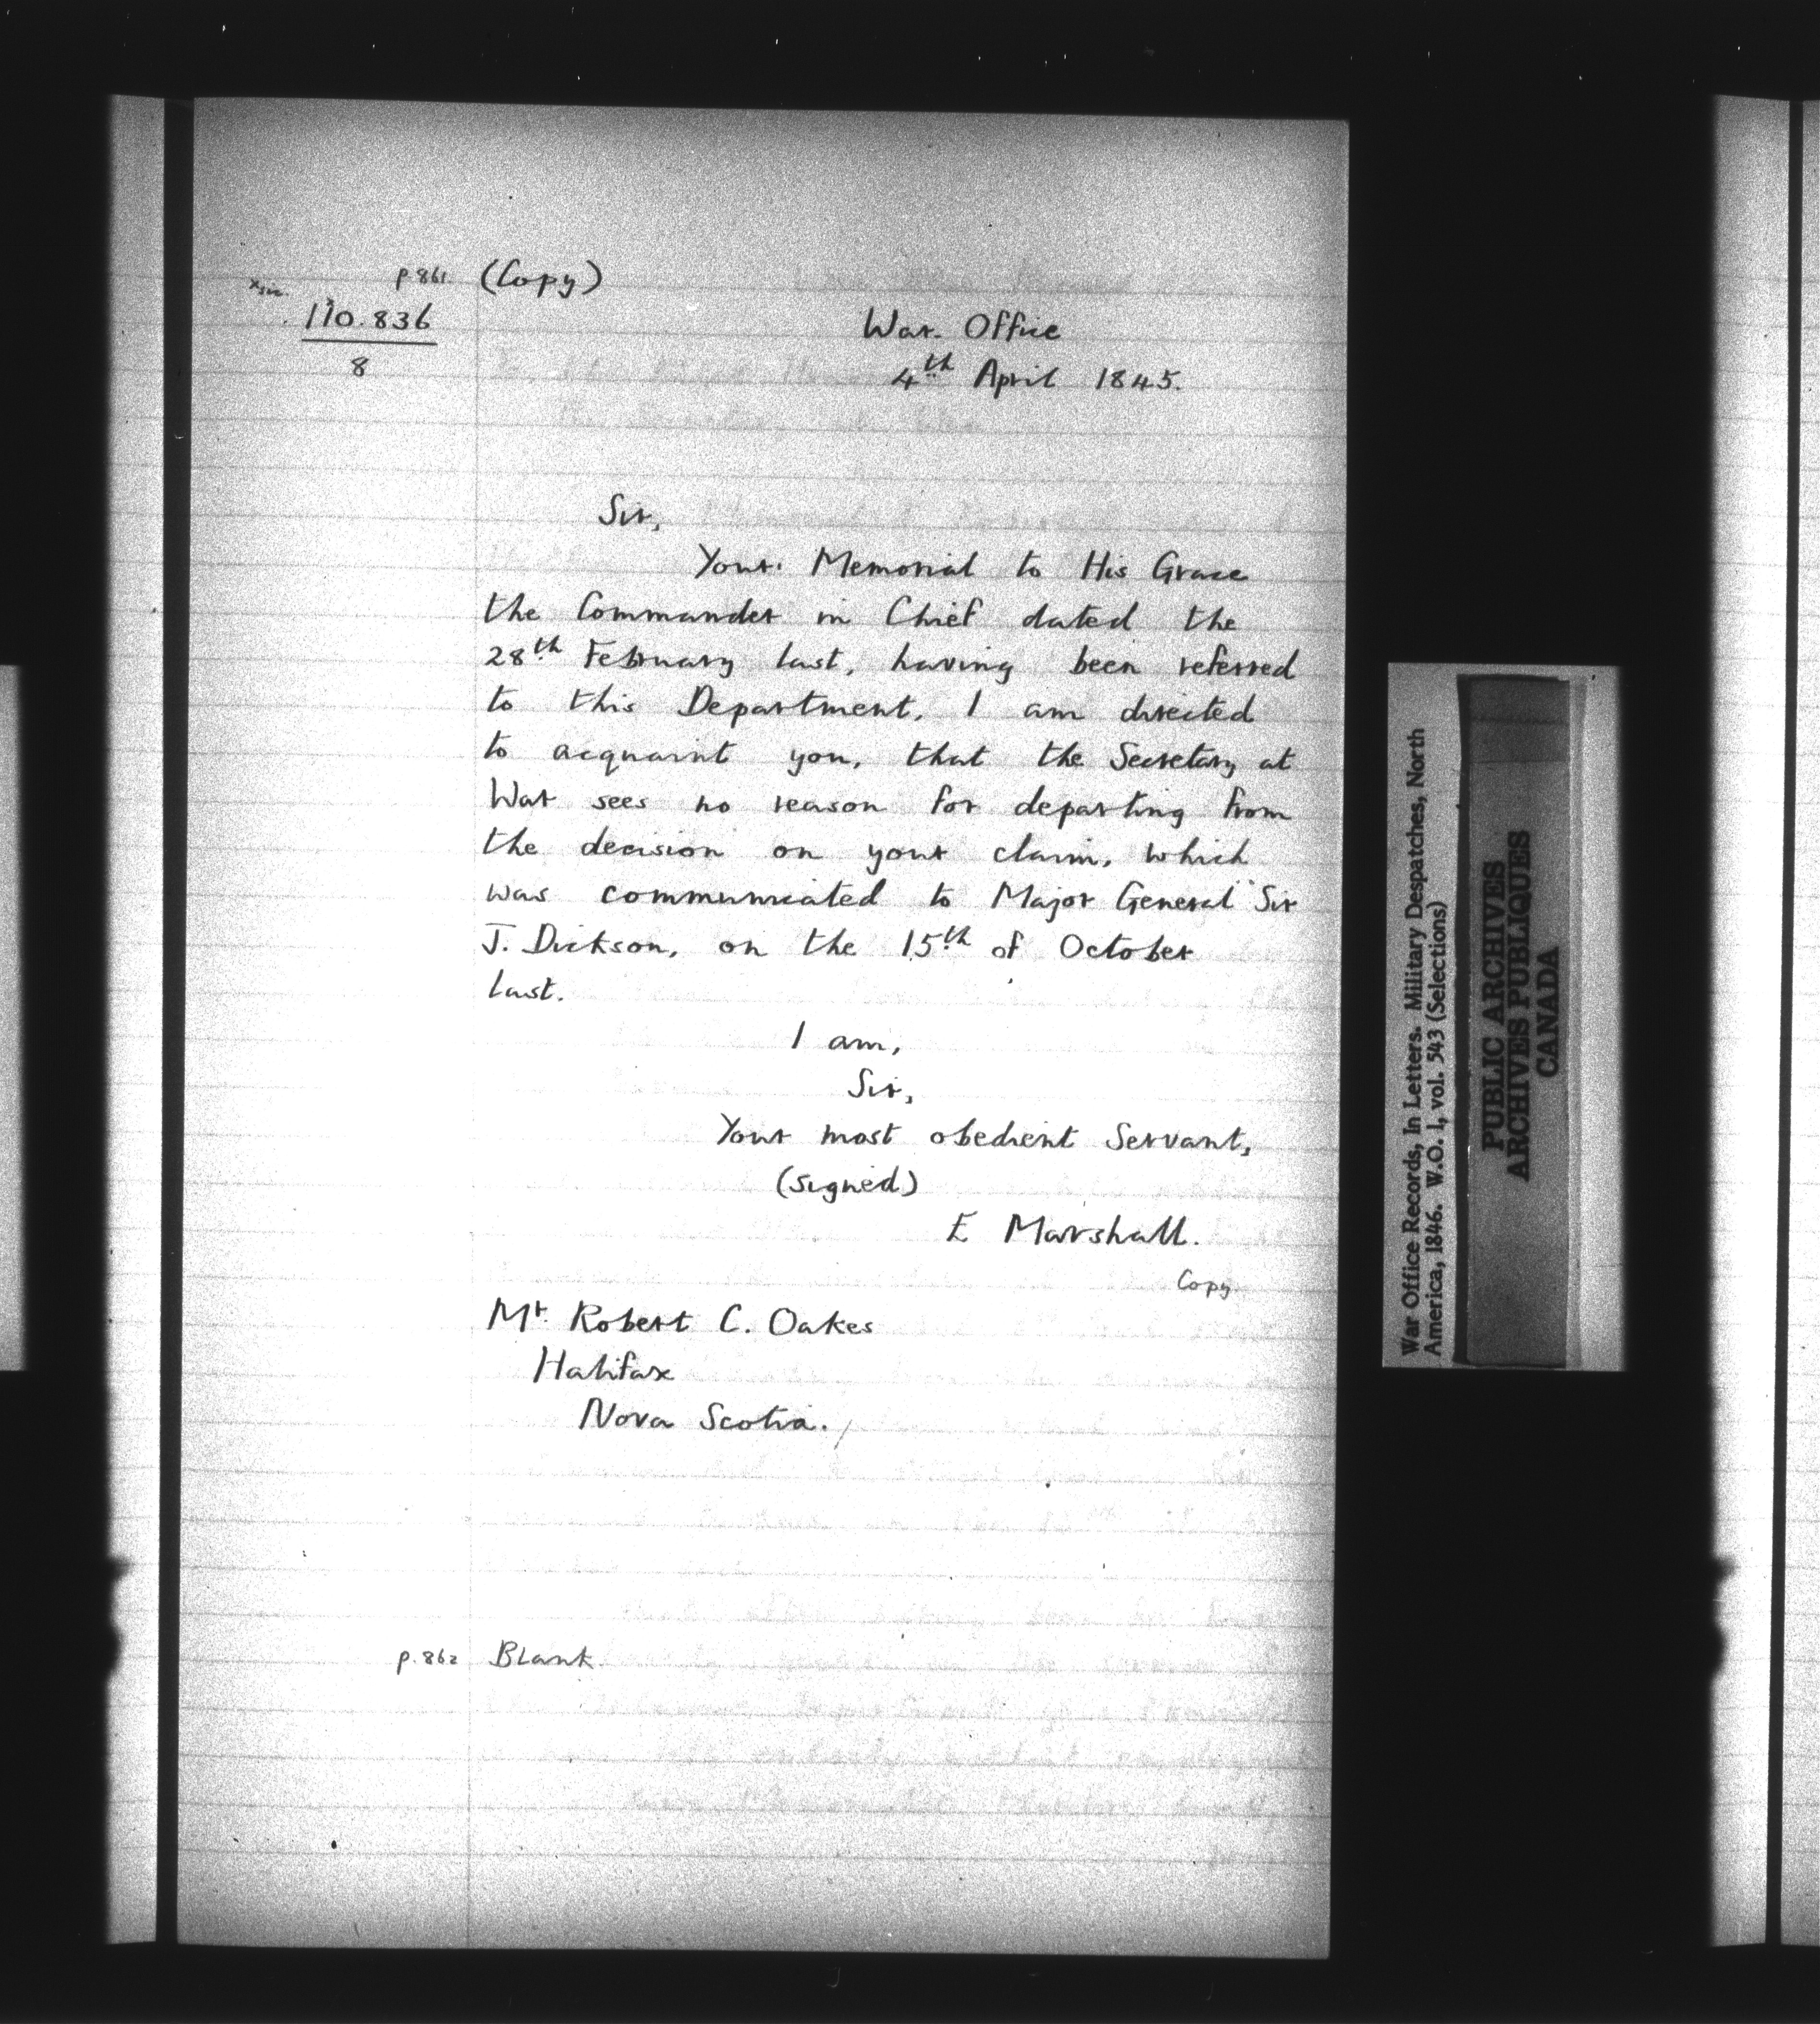 p. 861. (Copy)
110.836
8
War Office
4th April 1845.
Sir,
Your Memorial to His Grace
the Commander in Chief dated the
28th February last, having been referred
to this Department, I am directed
to acquaint you, that the Secretary at
War sees no reason for departing from
the decision on your claim, which
was communicated to Major General Sir
J. Dickson, on the 15th of October
last.
I am,
Sir,
Your most obedient Servant,
(signed)
E Marshall.
Copy
Mr. Robert C. Oakes
Halifax
Nova Scotia.
p. 862 Blank.
War Office Records, In Letters. Military Despatches, North
America, 1846. W.O. 1, vol. 543 (Selections)
PUBLIC ARCHIVES
ARCHIVES PUBLIQUES
CANADA